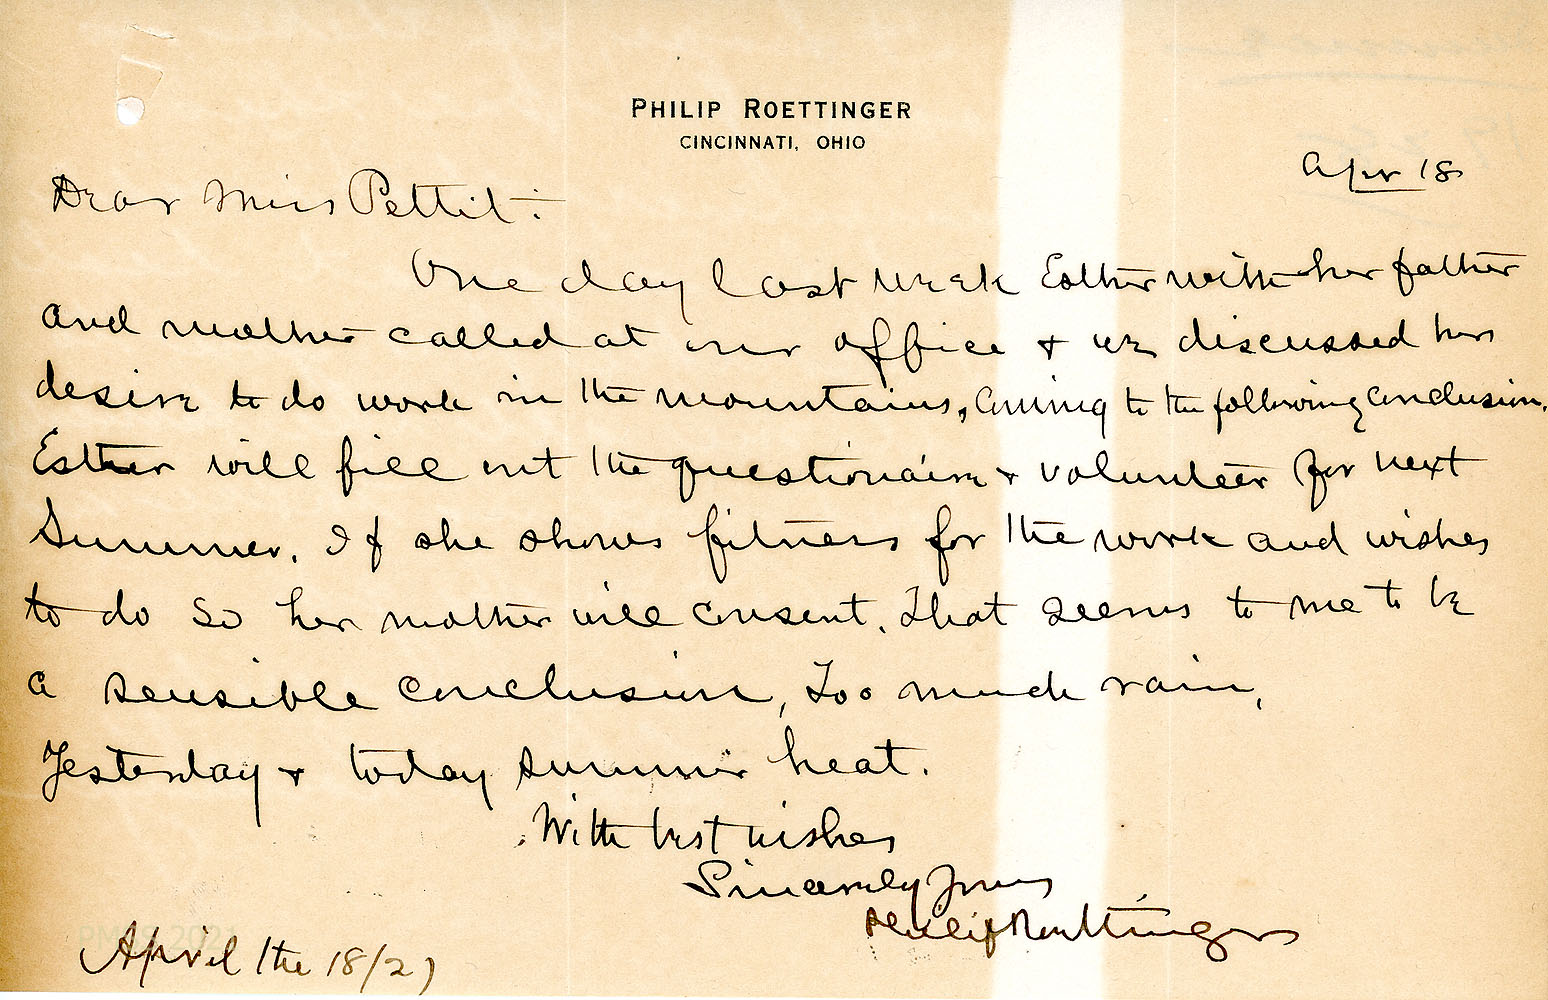 PHILIP ROETTINGER
CINCINNATI, OHIO
Apr 18
Dear Miss Pettit:
One day last week Esther with her father
and mother called at our office & we discussed her
desire to do work in the mountains, coming to the following conclusion.
Esther will fill out the questionaire & volunteer for next
Summer. If she shows fitness for the work and wishes
to do so her mother will consent. That seems to me to be
a sensible conclusion, Too much rain,
Yesterday & today summer heat.
With best wishes
Sincerely Yours
Philip Roettinger
PMSS 2021
April the 18/27